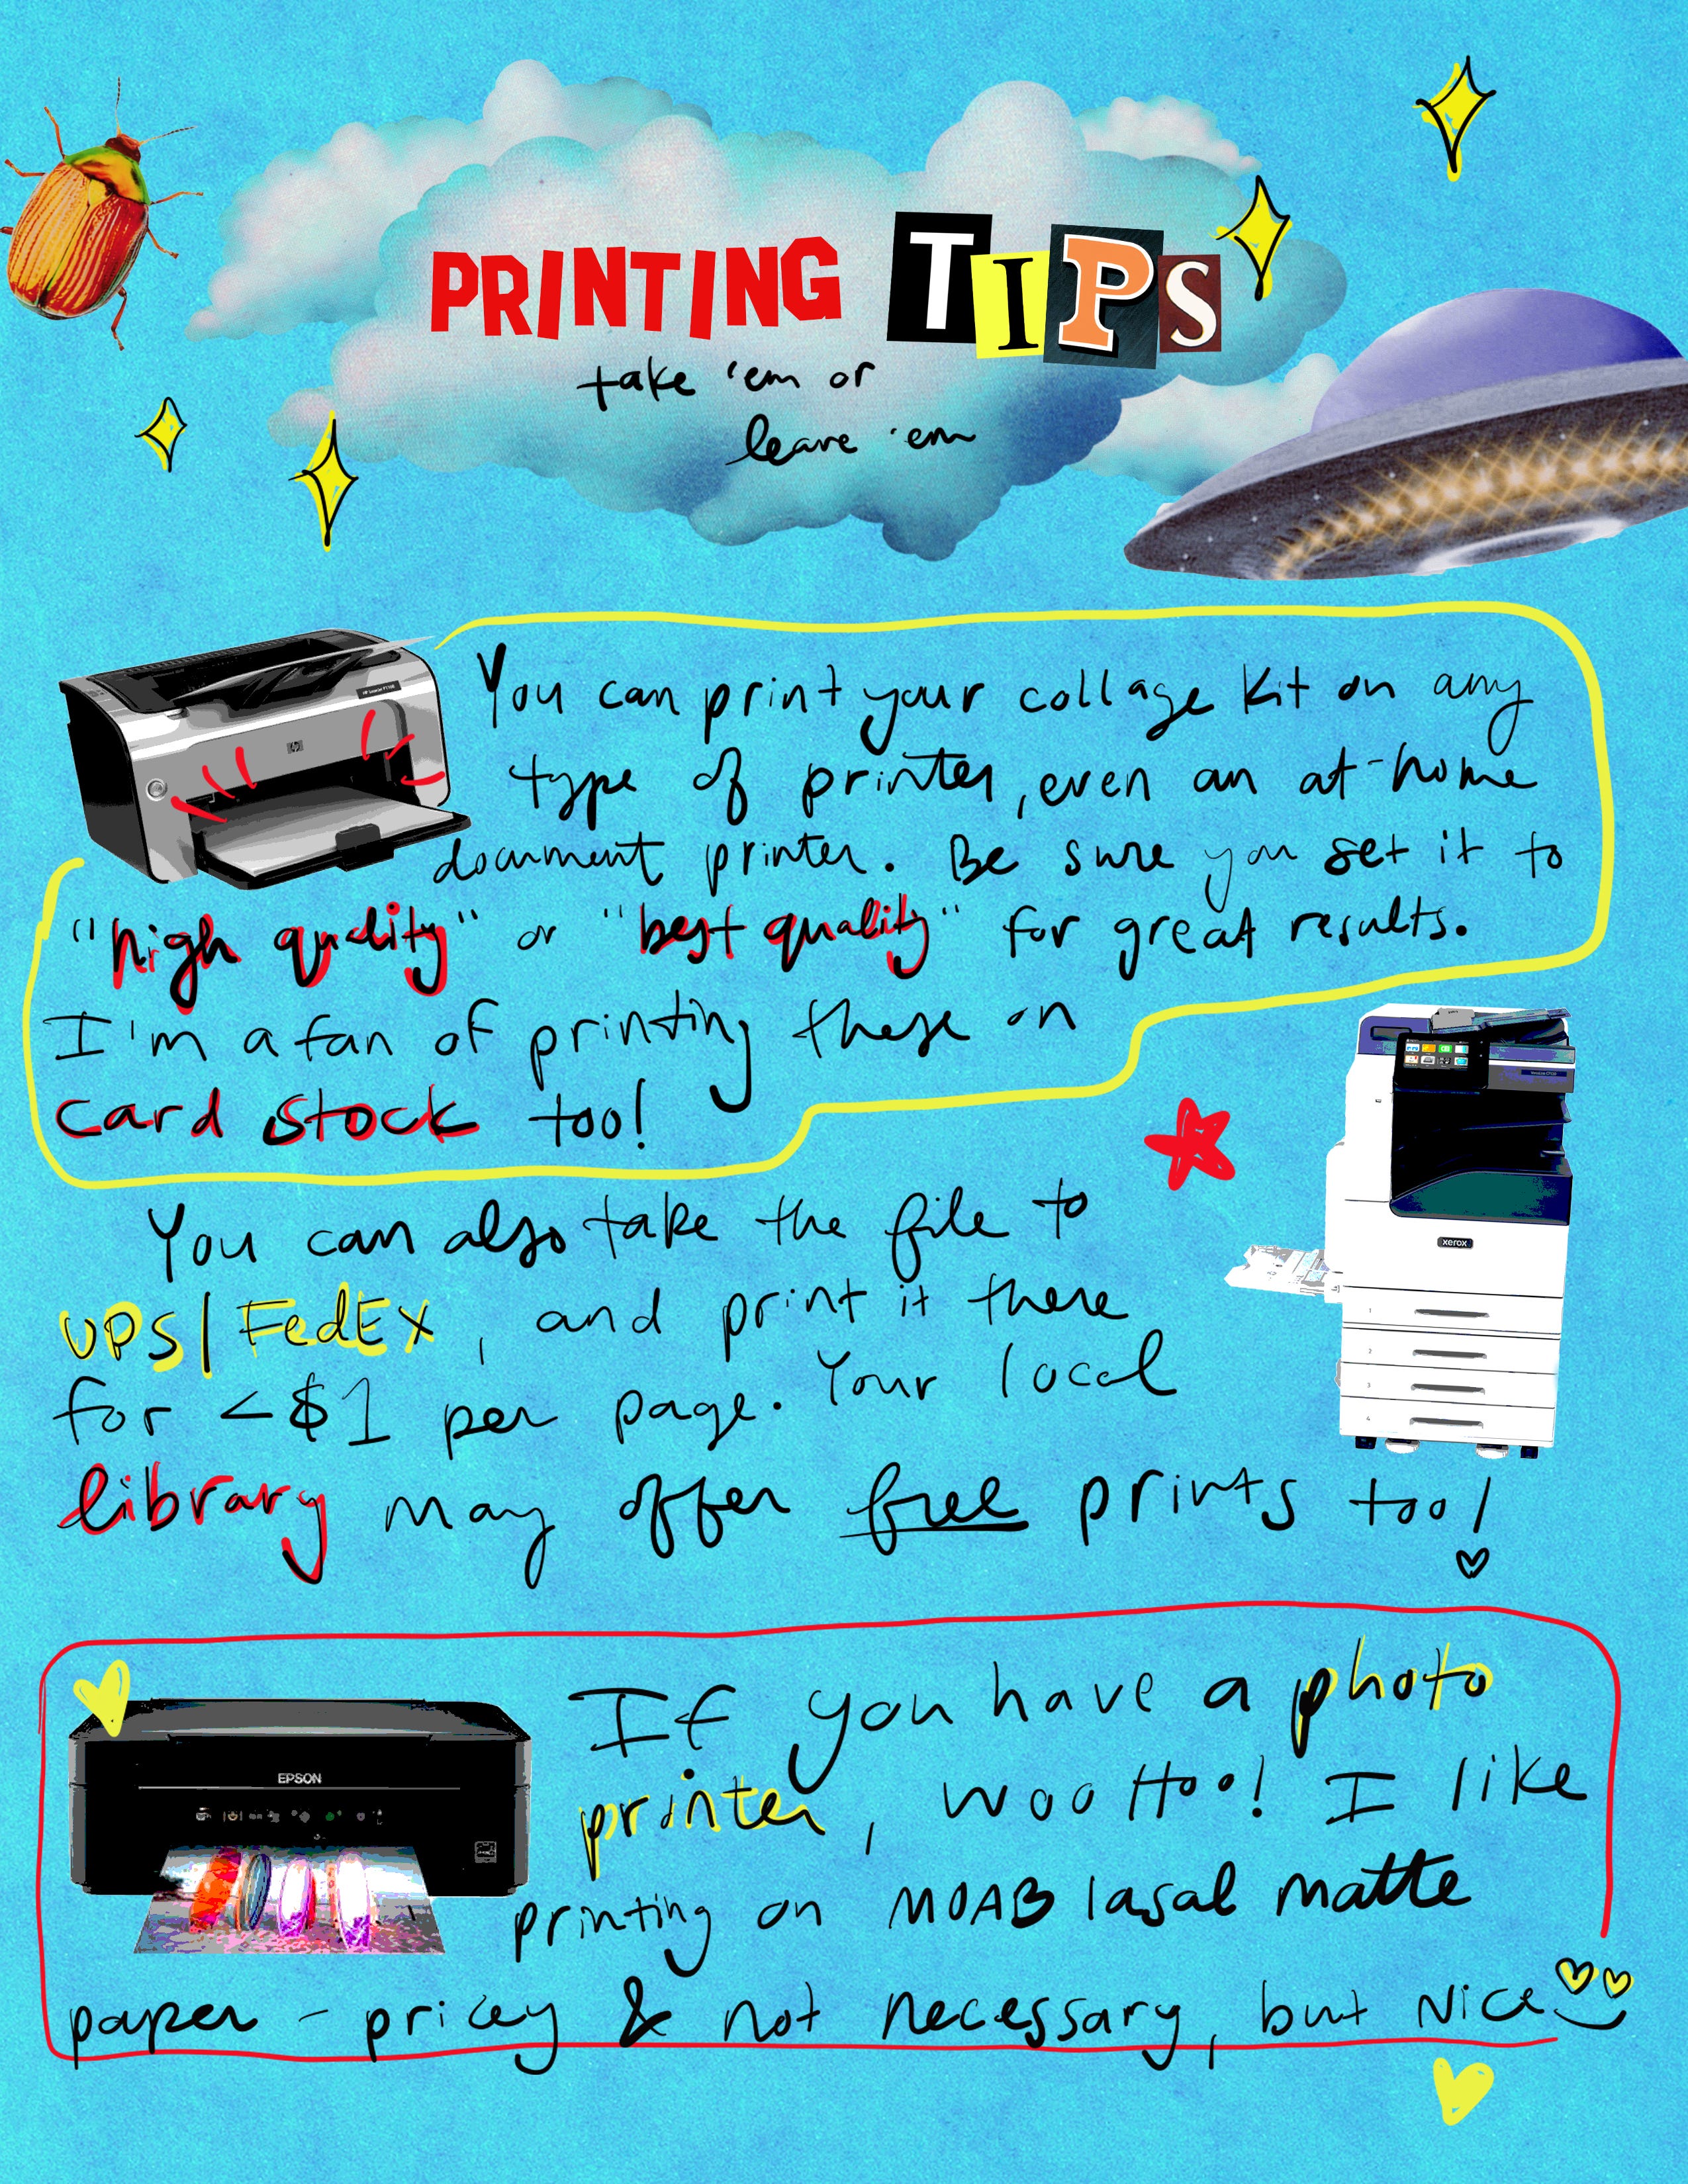 PRINTING TIPS
take 'em or
leave 'em
You can print your collage kit on any
type of printer, even an at-home
document printer. Be sure you set it to
"high quality" or "best quality" for great results.
I'm a fan of printing these on
card stock too!
You can also take the file to
UPS/FedEx, and print it there
for <$1 per page. Your local
library may offer free prints too!
xerox
1
2
3
4
EPSON
If you have a photo
printer, woo Hoo! I like
printing on MOAB lasal matte
paper - pricey & not necessary, but Nice